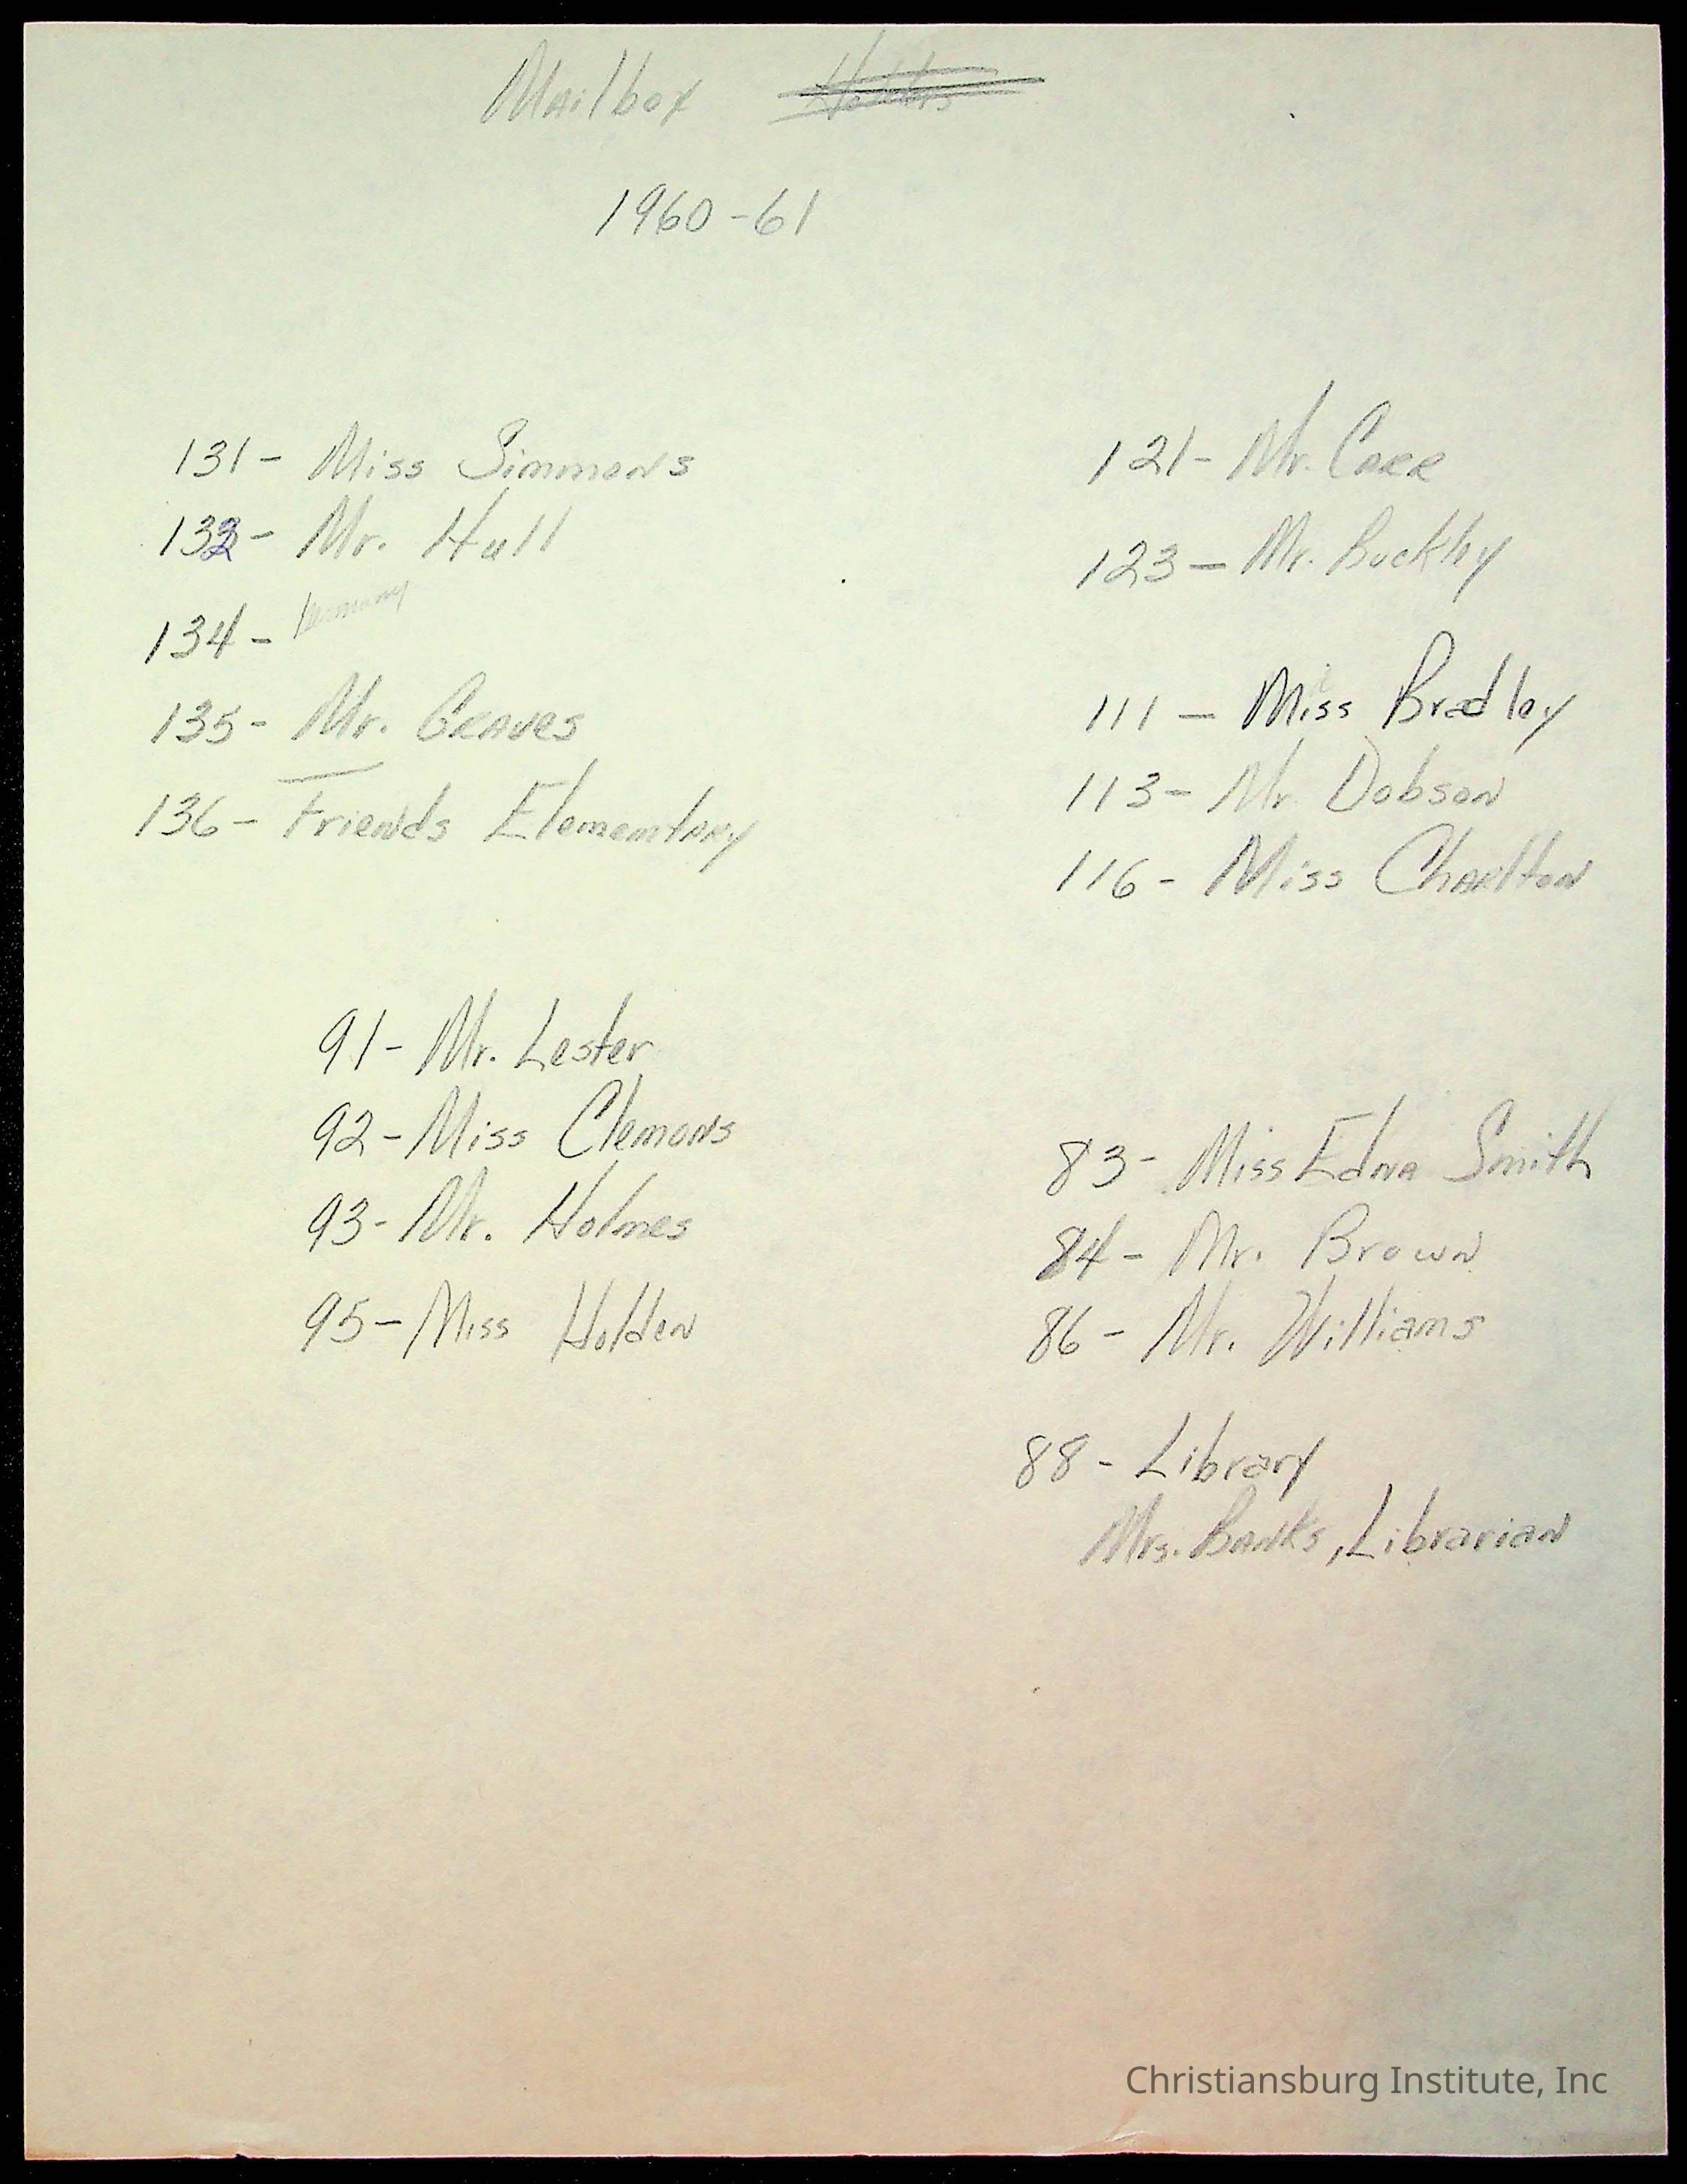 Mailbox
1960-61
131- Miss Simmons
132- Mr. Hull
134-
135- Mr. Graves
136- Friends Elementary
121- Mr. Carr
123- Mr. Buckley
111- Miss Bradley
113- Mr. Dobson
116- Miss Charlton
91- Mr. Lester
92- Miss Clemons
93- Mr. Holmes
95- Miss Holden
83- Miss Edna Smith
84- Mr. Brown
86- Mr. Williams
88- Library
Mrs. Banks, Librarian
Christiansburg Institute, Inc